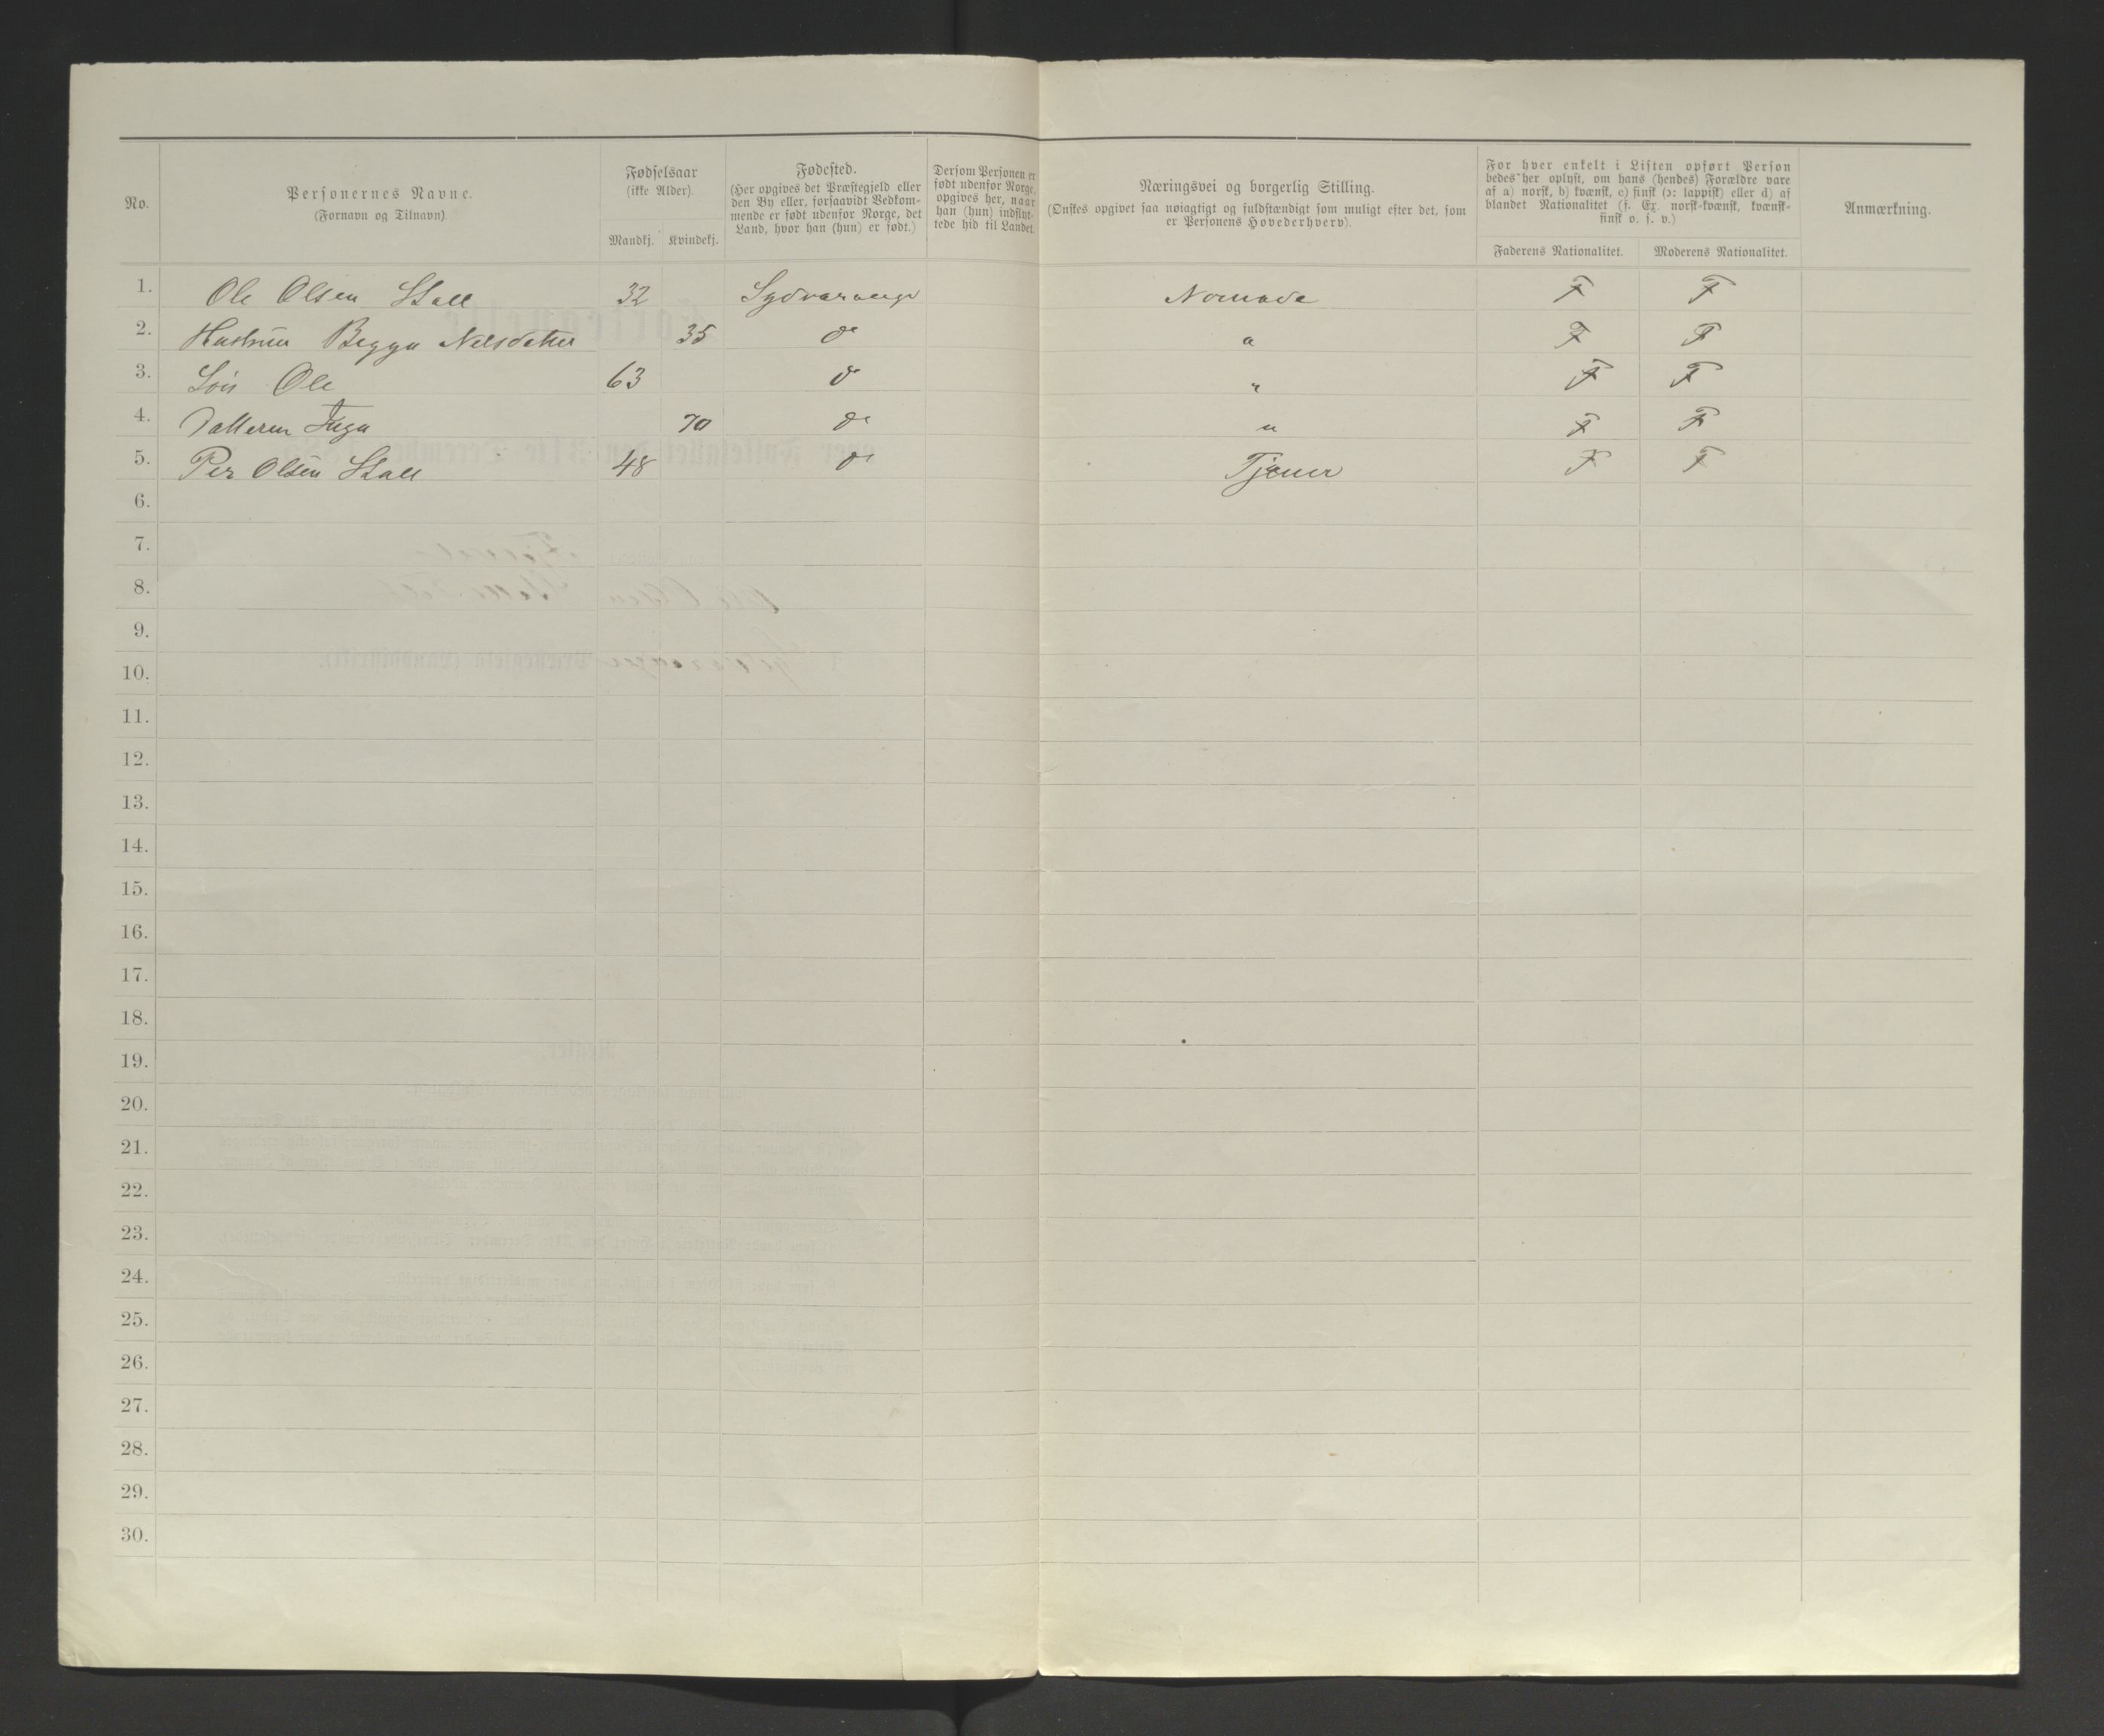 No.
Personernes Navne.
(Fornavn og Tilnavn)
Fødselsaar
(ikke Alder).
Mandkj. Kvindekj.
Fødested.
(Her opgives det Præstegjeld eller
den By eller, forsaavidt Vedkom-
mende er født udenfor Norge, det
Land, hvor han (hun) er født.)
Dersom Personen er
født udenfor Norge,
opgives her, naar
han (hun) indflyt-
tede hid til Landet.
Næringsvei og borgerlig Stilling.
(Ønskes opgivet saa nøiagtigt og fuldstændigt som muligt efter det, som
er Personens Hovederhverv).
For hver enkelt i Listen opført Person
bedes her oplyst, om hans (hendes) Forældre vare
af a) norsk, b) kvænsk, c) finsk (ɔ: lappisk) eller d) af
blandet Nationalitet (f. Ex. norsk-kvænsk, kvænsk-
finsk o. s. v.)
Faderens Nationalitet. Moderens Nationalitet.
Anmærkning.
1. Ole Olsen 32 Sydvaranger Nomade F F
2. Hustruen Nilsdatter 35 do " F F
3. Søn Ole 63 do " F F
4. Datteren 70 do " F F
5. Per Olsen 48 do Tjener F F
6.
7.
8.
9.
10.
11.
12.
13.
14.
15.
16.
17.
18.
19.
20.
21.
22.
23.
24.
25.
26.
27.
28.
29.
30.